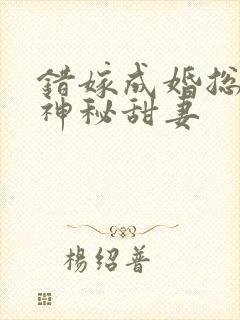 錯嫁成婚总
神秘甜妻
楊绍普